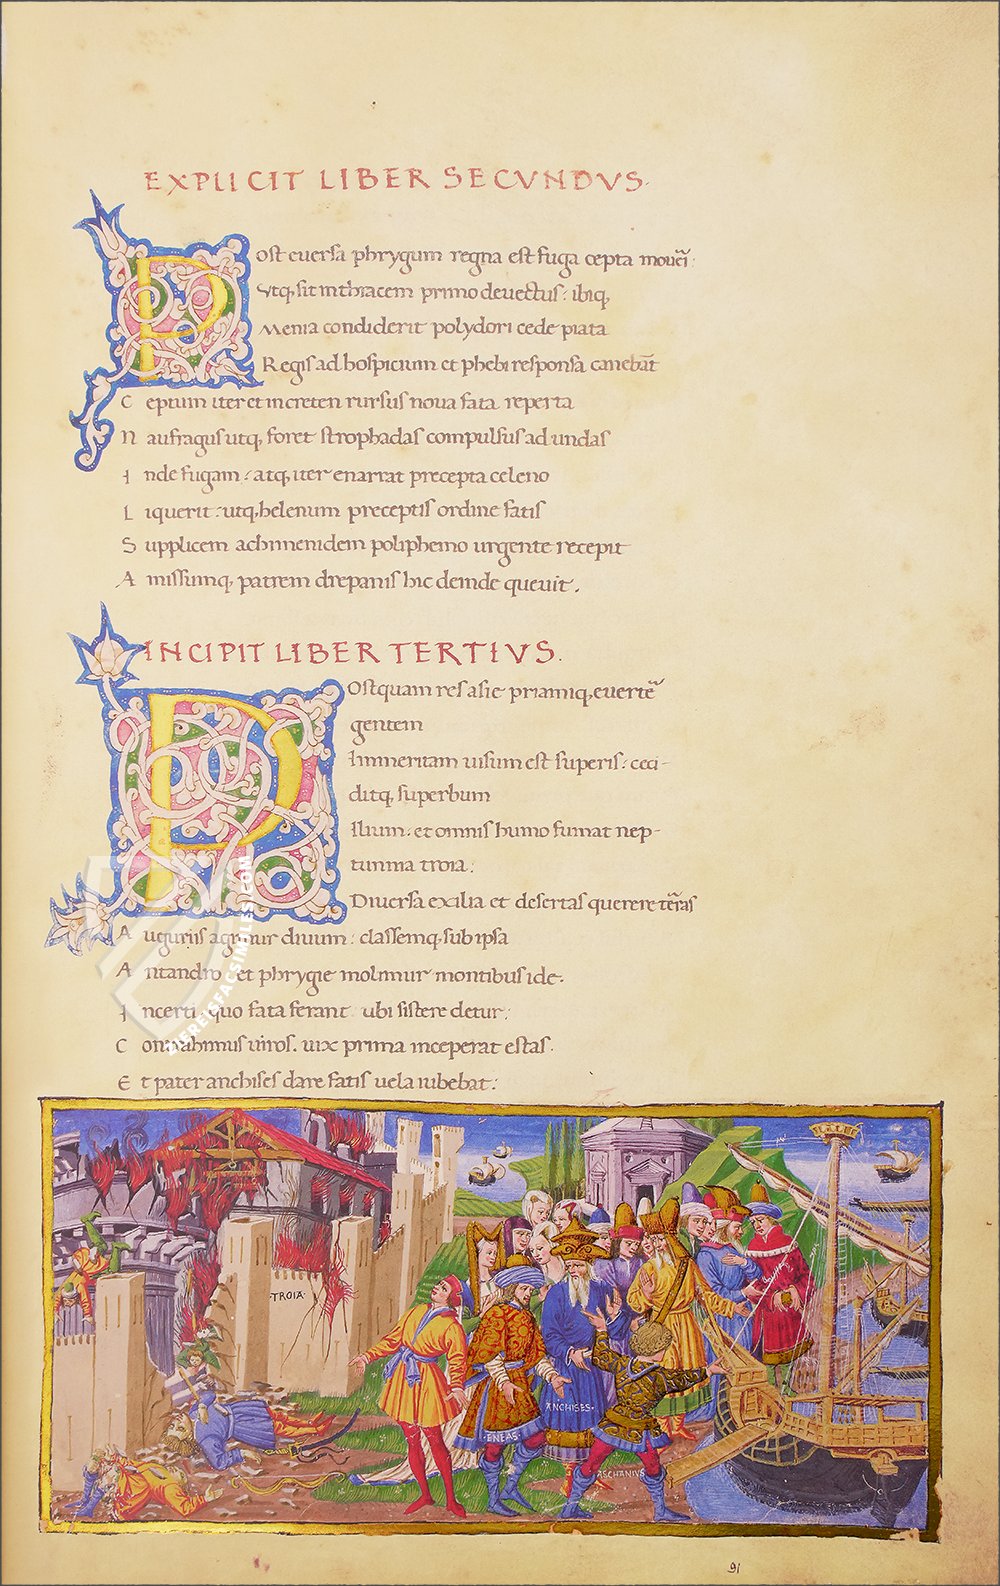 EXPLICIT LIBER SECVNDVS.
Post euersa phrygum regna est fuga cepta moueri:
Vtq, sit in thracem primo deuectus: ibiq,
Menia condiderit polydori cede piata
Regis ad hospicium et phebi responsa canebāt
Ceptum iter et in creten rursus noua fata reperta
Naufragus utq, foret strophadas compulsus ad undas
Inde fugam: atq, iter enarrat precepta celeno
Liquerit: utq, helenum preceptis ordine fatis
Supplicem achimenidem poliphemo urgente recepit
Amissumq, patrem drepanis hic deinde queuit.
INCIPIT LIBER TERTIVS.
Postquam res asie priamiq, euertē
gentem
Immeritam uisum est superis: ceci-
ditq, superbum
Ilium: et omnis humo fumat nep-
tunnia troia:
Diuersa exilia et desertas querere tēras
Auguriis agimur diuum: classemq, sub ipsa
Antandro et phrygie molimur montibus ide.
Incerti quo fata ferant ubi sistere detur:
Contrahimus uiros. uix prima inceperat estas.
Et pater anchises dare fatis uela iubebat:
TROIA
ENEAS
ANCHISES
ASCHANIVS
91
ZIEREISFACSIMILES.COM